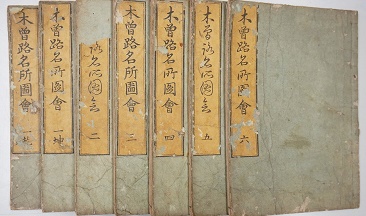 木曽路名所圖會 一乾
木曽路名所圖會 一坤
路名所圖會 二
木曽路名所圖會 三
木曽路名所圖會 四
木曽路名所圖會 五
木曽路名所圖會 六